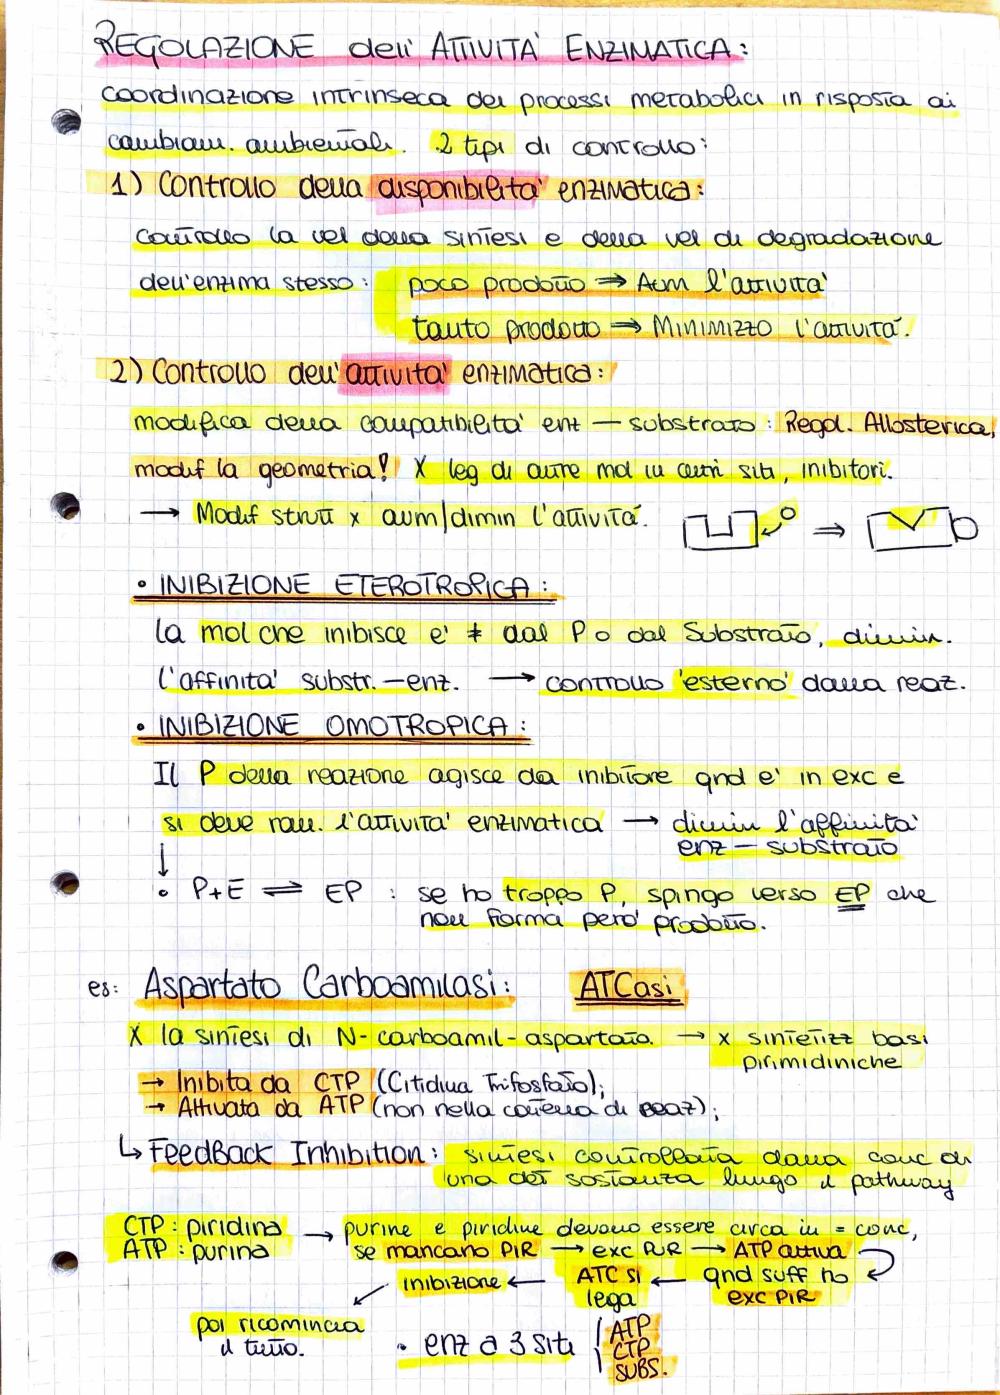 REGOLAZIONE dell' ATTIVITA' ENZIMATICA:
coordinazione intrinseca dei processi metabolici in risposta ai
cambiam. ambientali. 2 tipi di controllo:
1) Controllo della disponibilita' enzimatica:
controllo la vel della sintesi e della vel di degradazione
dell'enzima stesso: poco prodotto ⇒ Aum l'attivita'
tanto prodotto ⇒ MINIMIZZO l'attivita'.
2) Controllo dell'attivita' enzimatica:
modifica della compatibilita' enz — substrato: Regol. Allosterica,
modif la geometria! X leg di altre mol in altri siti, inibitori.
→ Modif strutt x aum/dimin l'attivita'. ⇒
• INIBIZIONE ETEROTROPICA:
la mol che inibisce e' ≠ dal P o dal Substrato, dimin.
l'affinita' substr. - enz. → controllo 'esterno' dalla reaz.
• INIBIZIONE OMOTROPICA:
Il P della reazione agisce da inibitore qnd e' in exc e
si deve rall. l'attivita' enzimatica → dimin l'affinita'
enz — substrato
↓
• P+E ⇌ EP : se ho troppo P, spingo verso EP che
non forma pero' prodotto.
es: Aspartato Carboamilasi: ATCasi
X la sintesi di N-carboamil-aspartato. → x sintetizz basi
pirimidiniche
→ Inibita da CTP (Citidina Trifosfato);
→ Attivata da ATP (non nella catena di reaz);
↳ FeedBack Inhibition: sintesi controllata dalla conc di
una det sostanza lungo il pathway
CTP: piridina → purine e piridine devono essere circa in = conc,
ATP: purina se mancano PIR → exc PUR → ATP attiva
inibizione ← ATC si ← qnd suff ho
lega exc PIR
poi ricomincia
il tutto.
• enz a 3 siti { ATP
CTP
SUBS.